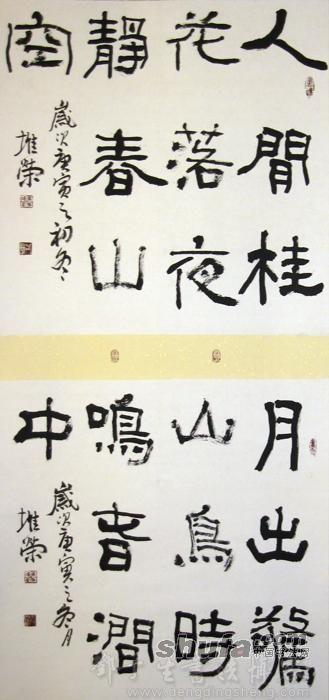 人閒桂
花落夜
靜春山
空
歲次庚寅之初冬
榮
月出驚
山鳥時
鳴旾澗
中
歲次庚寅之冬月
榮
www.dengdingsheng.com